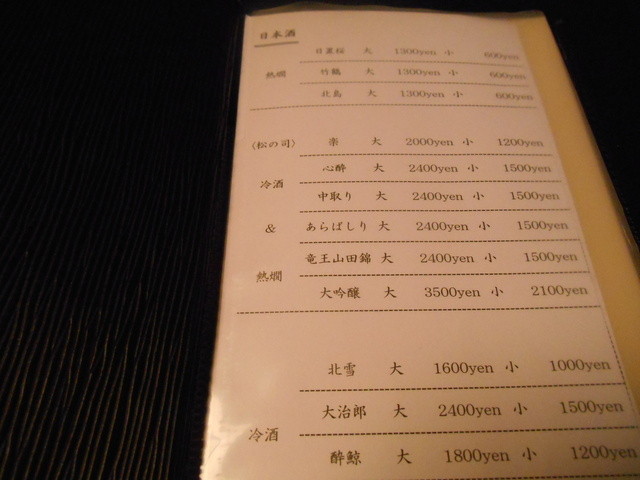 日本酒
日置桜 大 1300yen 小 600yen
熱燗 竹鶴 大 1300yen 小 600yen
北島 大 1300yen 小 600yen
(松の司) 楽 大 2000yen 小 1200yen
心酔 大 2400yen 小 1500yen
冷酒
中取り 大 2400yen 小 1500yen
& あらばしり 大 2400yen 小 1500yen
竜王山田錦 大 2400yen 小 1500yen
熱燗
大吟醸 大 3500yen 小 2100yen
北雪 大 1600yen 小 1000yen
大治郎 大 2400yen 小 1500yen
冷酒
酔鯨 大 1800yen 小 1200yen